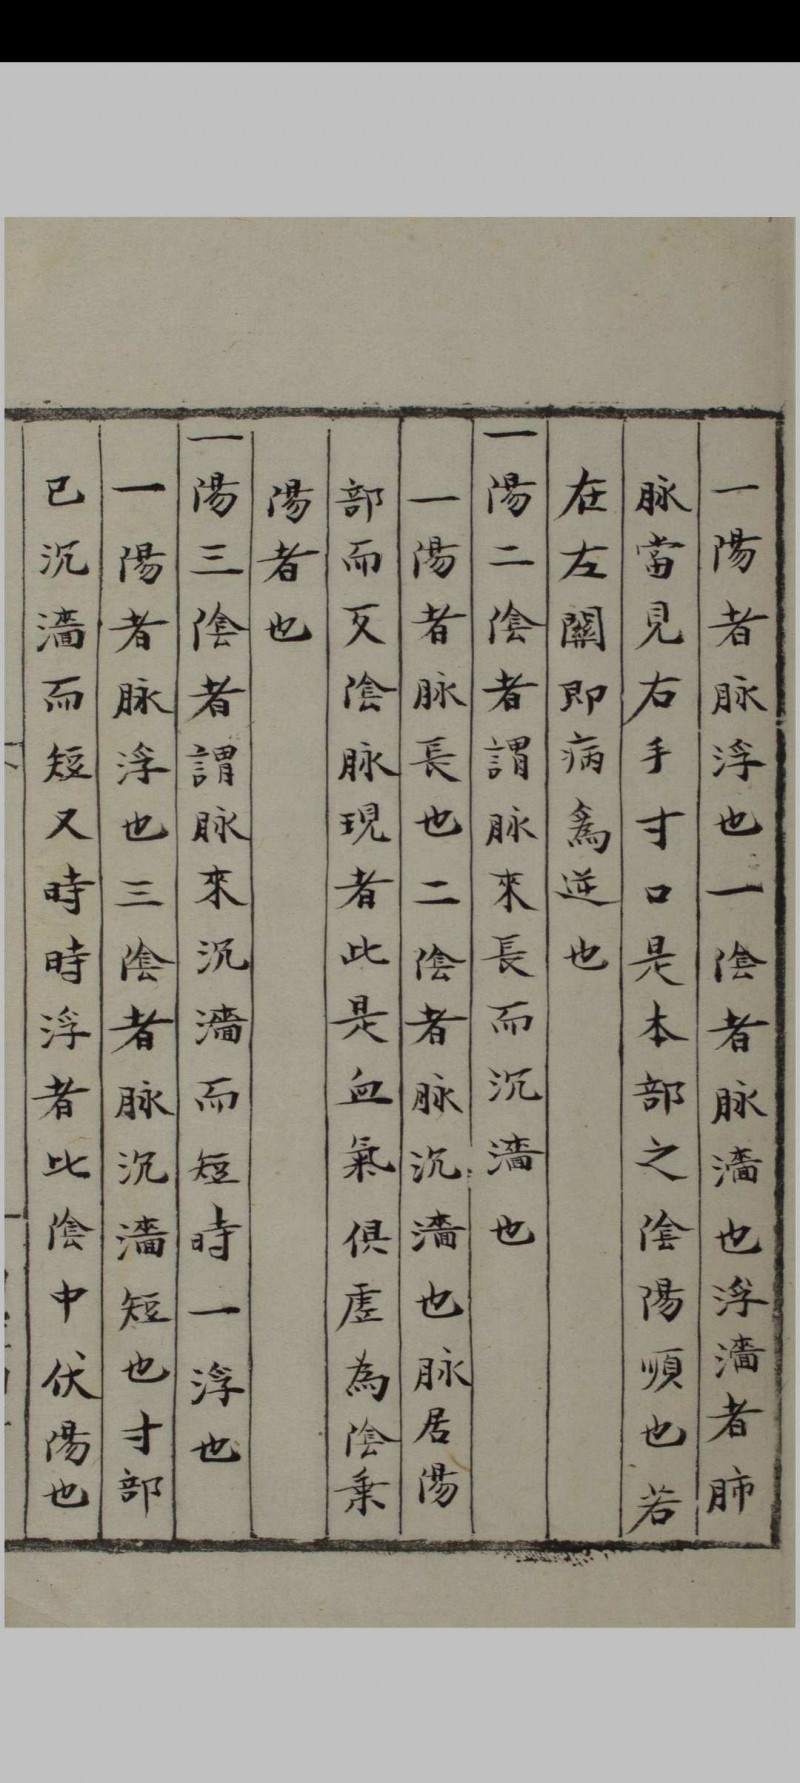 一陽者脉浮也一陰者脉濇也浮濇者肺
脉當見右手寸口是本部之陰陽順也若
在左關即病為逆也
一陽二陰者謂脉來長而沉濇也
一陽者脉長也二陰者脉沉濇也脉居陽
部而反陰脉現者此是血氣俱虛為陰乗
陽者也
一陽三陰者謂脉來沉濇而短時一浮也
一陽者脉浮也三陰者脉沉濇短也寸部
已沉濇而短又時時浮者此陰中伏陽也